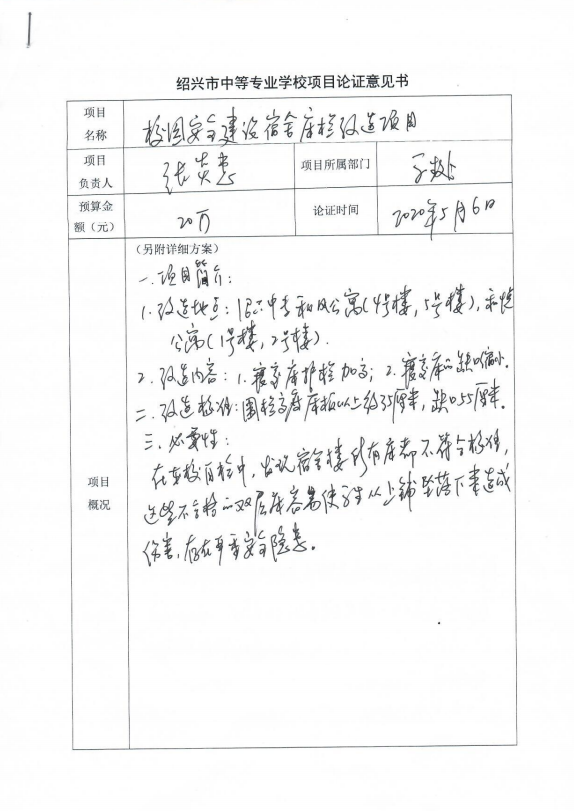 绍兴市中等专业学校项目论证意见书
项目名称 校园安全建设宿舍床栏改造项目
项目负责人 张英惠 项目所属部门 学工处
预算金额（元） 20万 论证时间 2020年5月6日
项目概况
（另附详细方案）
一. 项目简介：
1. 改造地点：中专和风公寓(4号楼, 5号楼), 和悦
公寓(1号楼, 2号楼).
2. 改造内容：1. 寝室床护栏加高；2. 寝室床的缺口缩小.
二. 改造标准：围栏高度床板以上约35厘米, 缺口55厘米.
三. 必要性：
在本校自检中, 发现宿舍楼所有床都不符合标准,
这些不合格的双层床容易使学生从上铺坠落下来造成
伤害, 存在严重安全隐患。